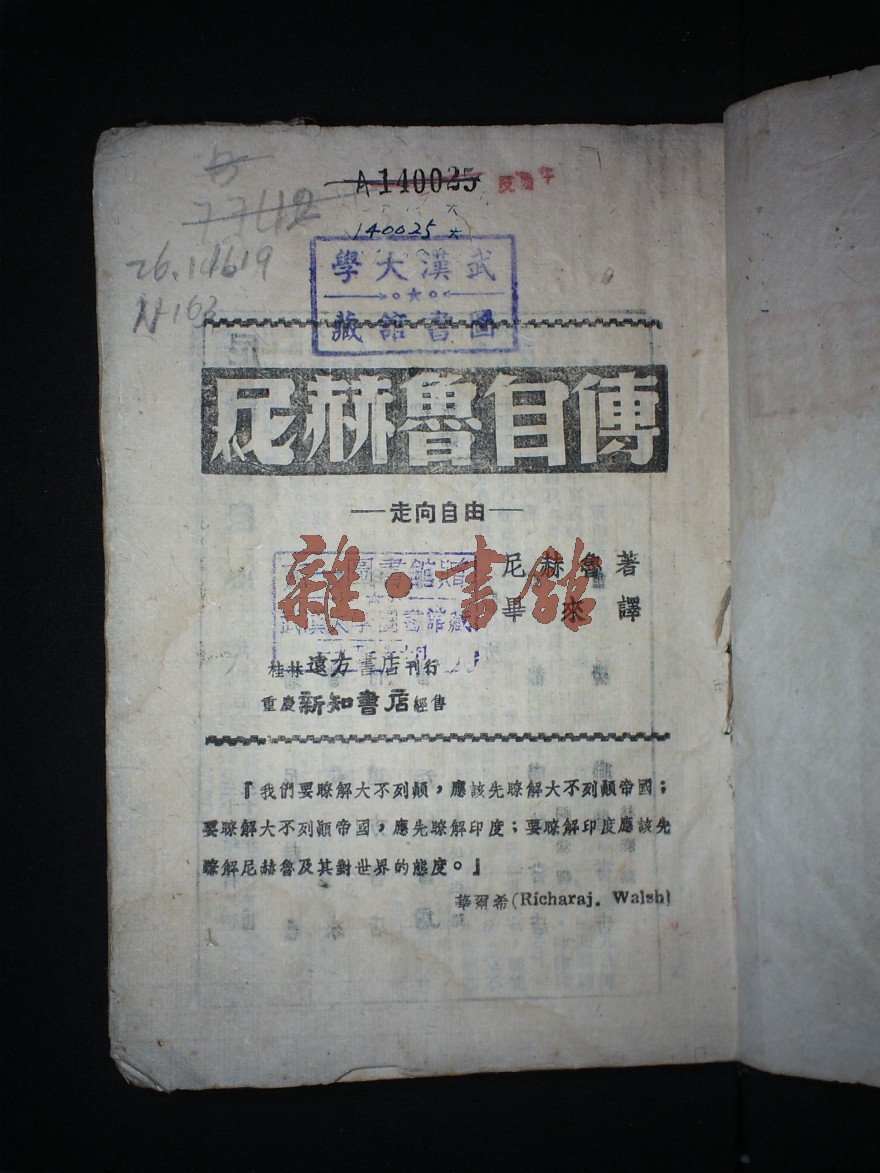 A140025
140025 *
26.14619
N162
武漢大學
圖書館藏
尼赫魯自傳
—走向自由—
尼赫魯著
畢來譯
雜·書館
桂林遠方書店刊行
重慶新知書店經售
『我們要瞭解大不列顛，應該先瞭解大不列顛帝國；
要瞭解大不列顛帝國，應先瞭解印度；要瞭解印度應該先
瞭解尼赫魯及其對世界的態度。』
華爾希(Richaraj. Walsh)